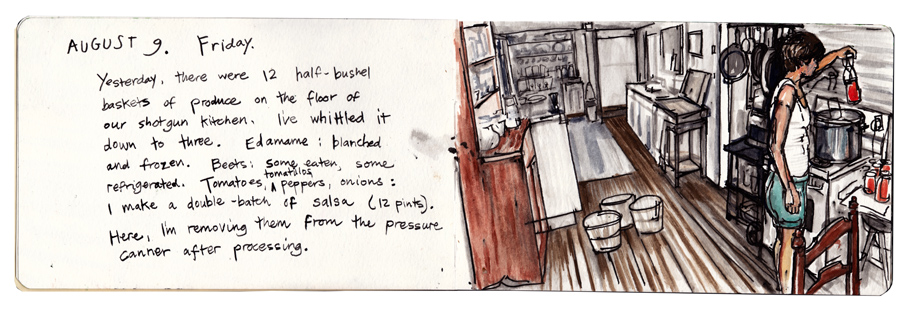 AUGUST 9. Friday.
Yesterday, there were 12 half-bushel
baskets of produce on the floor of
our shotgun kitchen. I've whittled it
down to three. Edamame: blanched
and frozen. Beets: some eaten, some
refrigerated. Tomatoes, tomatillos, peppers, onions:
I make a double-batch of salsa (12 pints).
Here, I'm removing them from the pressure
canner after processing.